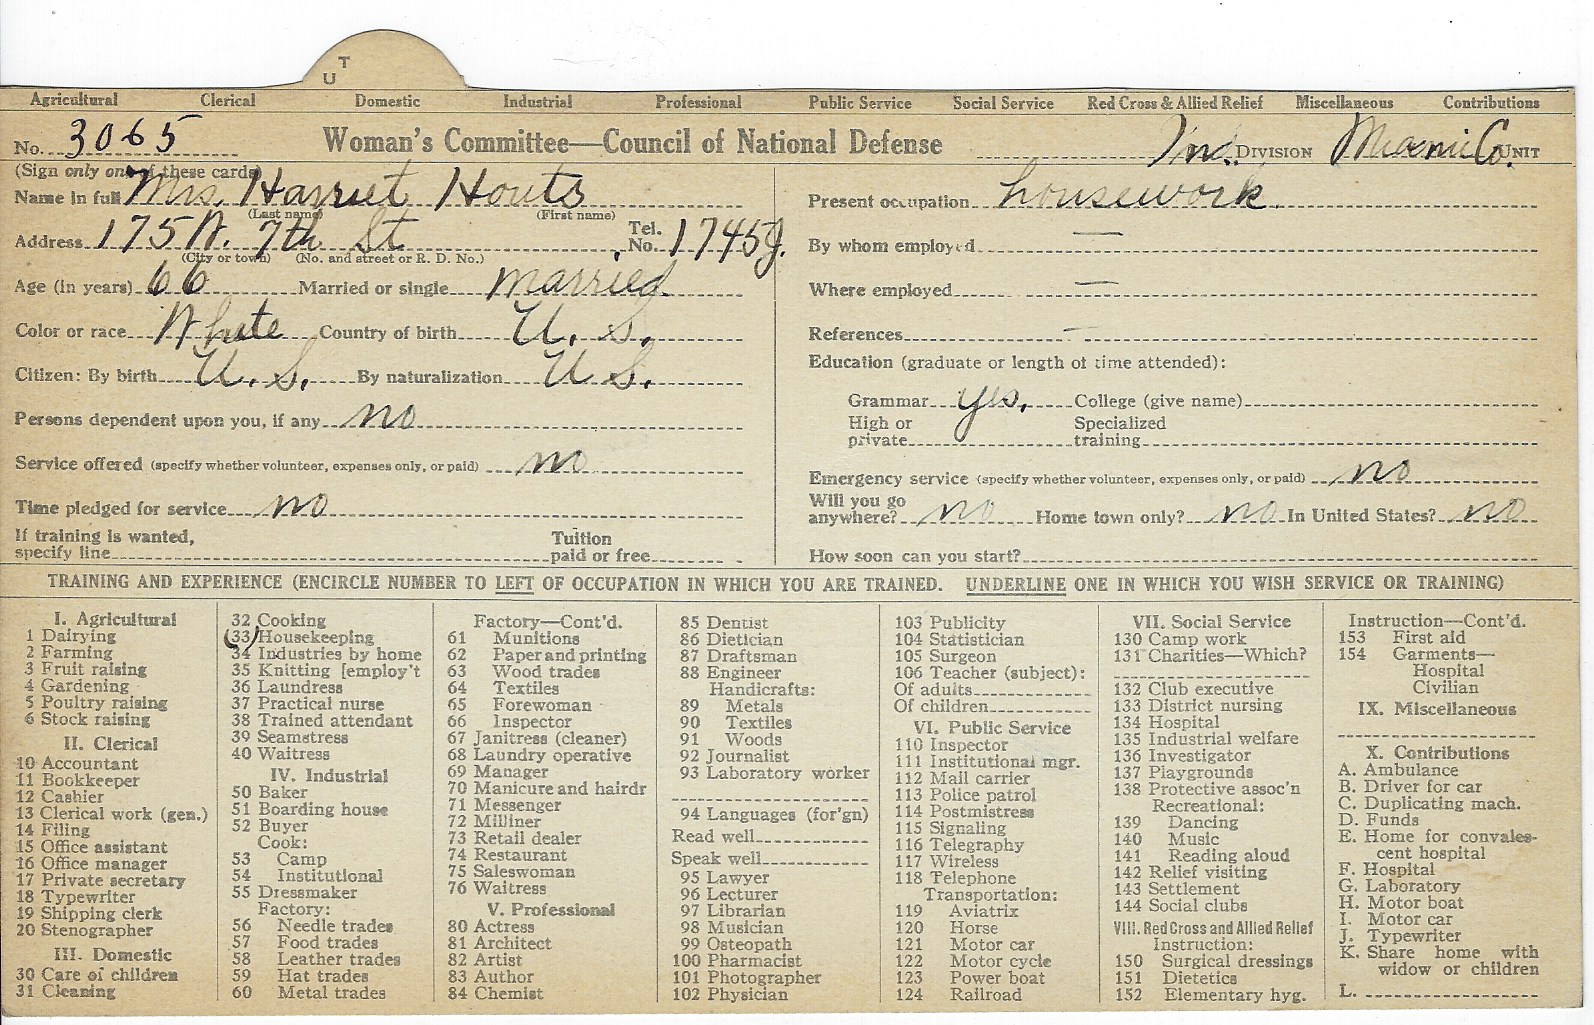 T
U
Agricultural Clerical Domestic Industrial Professional Public Service Social Service Red Cross & Allied Relief Miscellaneous Contributions
No. 3065 Woman's Committee—Council of National Defense Ind. DIVISION Miami Co. UNIT
(Sign only one of these cards)
Name in full Mrs. Harriet Houts
(Last name) (First name)
Address 175 W. 7th St Tel. No. 1745J.
(City or town) (No. and street or R. D. No.)
Age (in years) 66 Married or single married
Color or race White Country of birth U. S.
Citizen: By birth U. S. By naturalization U S.
Persons dependent upon you, if any no
Service offered (specify whether volunteer, expenses only, or paid) no
Time pledged for service no
If training is wanted, specify line Tuition paid or free
Present occupation housework.
By whom employed —
Where employed —
References —
Education (graduate or length of time attended):
Grammar yes, College (give name)
High or private Specialized training
Emergency service (specify whether volunteer, expenses only, or paid) no
Will you go anywhere? no Home town only? no In United States? no
How soon can you start?
TRAINING AND EXPERIENCE (ENCIRCLE NUMBER TO LEFT OF OCCUPATION IN WHICH YOU ARE TRAINED. UNDERLINE ONE IN WHICH YOU WISH SERVICE OR TRAINING)
I. Agricultural
1 Dairying
2 Farming
3 Fruit raising
4 Gardening
5 Poultry raising
6 Stock raising
II. Clerical
10 Accountant
11 Bookkeeper
12 Cashier
13 Clerical work (gen.)
14 Filing
15 Office assistant
16 Office manager
17 Private secretary
18 Typewriter
19 Shipping clerk
20 Stenographer
III. Domestic
30 Care of children
31 Cleaning
32 Cooking
33 Housekeeping
34 Industries by home
35 Knitting [employ't
36 Laundress
37 Practical nurse
38 Trained attendant
39 Seamstress
40 Waitress
IV. Industrial
50 Baker
51 Boarding house
52 Buyer
Cook:
53 Camp
54 Institutional
55 Dressmaker
Factory:
56 Needle trades
57 Food trades
58 Leather trades
59 Hat trades
60 Metal trades
Factory—Cont'd.
61 Munitions
62 Paper and printing
63 Wood trades
64 Textiles
65 Forewoman
66 Inspector
67 Janitress (cleaner)
68 Laundry operative
69 Manager
70 Manicure and hairdr
71 Messenger
72 Milliner
73 Retail dealer
74 Restaurant
75 Saleswoman
76 Waitress
V. Professional
80 Actress
81 Architect
82 Artist
83 Author
84 Chemist
85 Dentist
86 Dietician
87 Draftsman
88 Engineer
Handicrafts:
89 Metals
90 Textiles
91 Woods
92 Journalist
93 Laboratory worker
94 Languages (for'gn)
Read well
Speak well
95 Lawyer
96 Lecturer
97 Librarian
98 Musician
99 Osteopath
100 Pharmacist
101 Photographer
102 Physician
103 Publicity
104 Statistician
105 Surgeon
106 Teacher (subject):
Of adults
Of children
VI. Public Service
110 Inspector
111 Institutional mgr.
112 Mail carrier
113 Police patrol
114 Postmistress
115 Signaling
116 Telegraphy
117 Wireless
118 Telephone
Transportation:
119 Aviatrix
120 Horse
121 Motor car
122 Motor cycle
123 Power boat
124 Railroad
VII. Social Service
130 Camp work
131 Charities—Which?
132 Club executive
133 District nursing
134 Hospital
135 Industrial welfare
136 Investigator
137 Playgrounds
138 Protective assoc'n
Recreational:
139 Dancing
140 Music
141 Reading aloud
142 Relief visiting
143 Settlement
144 Social clubs
VIII. Red Cross and Allied Relief
Instruction:
150 Surgical dressings
151 Dietetics
152 Elementary hyg.
Instruction—Cont'd.
153 First aid
154 Garments—
Hospital
Civilian
IX. Miscellaneous
X. Contributions
A. Ambulance
B. Driver for car
C. Duplicating mach.
D. Funds
E. Home for convales-
cent hospital
F. Hospital
G. Laboratory
H. Motor boat
I. Motor car
J. Typewriter
K. Share home with
widow or children
L.